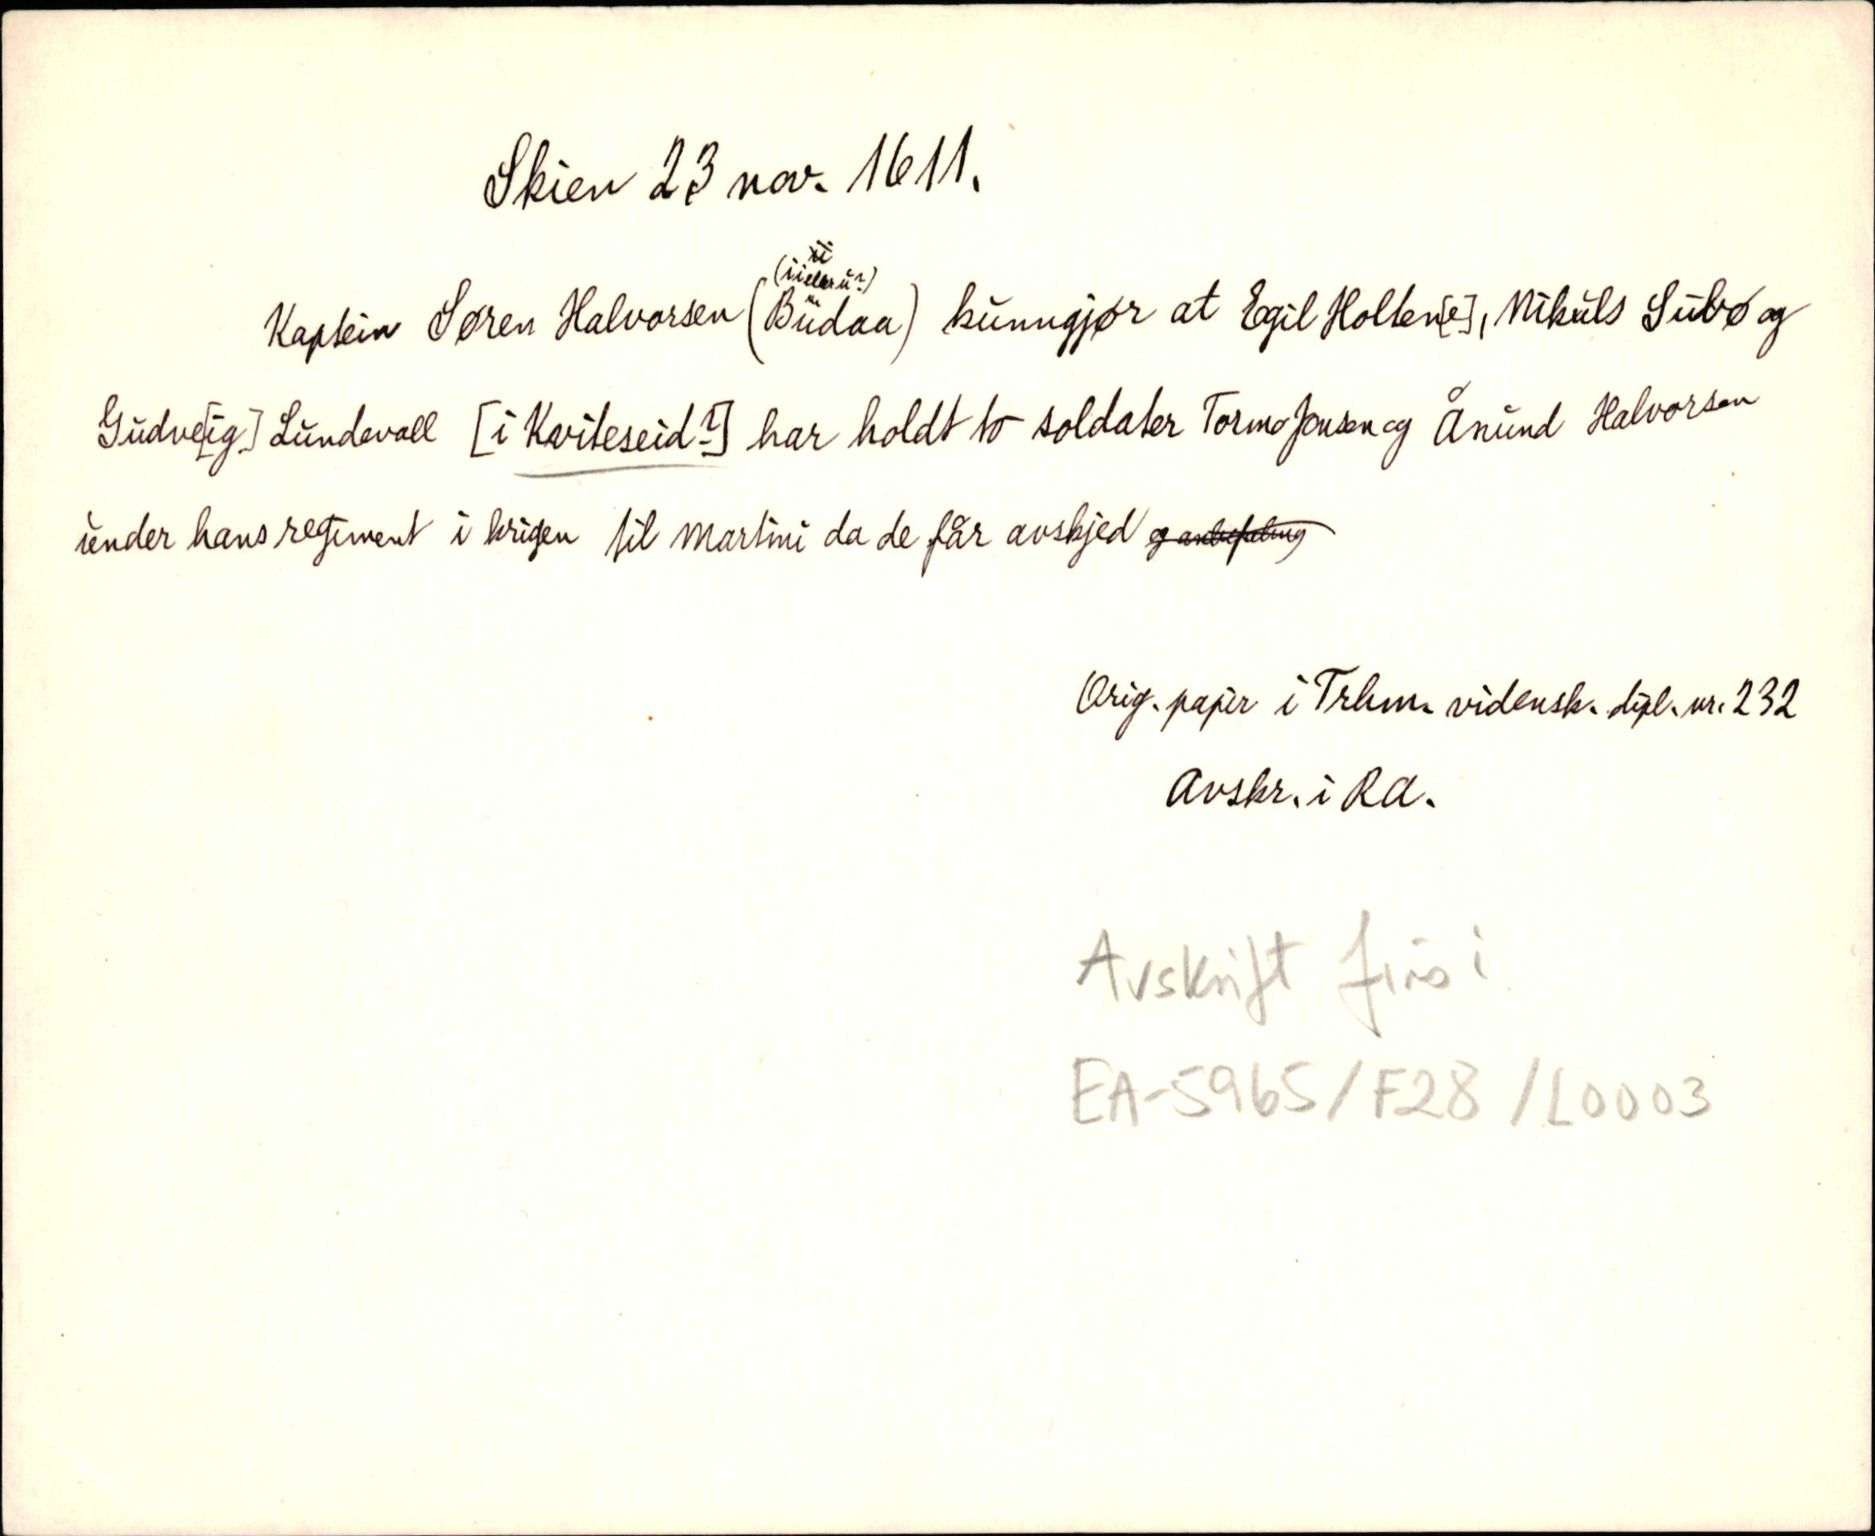 Skien 23 nov. 1611.
(ii eller ü?)
Kaptein Søren Halvorsen (Büdaa) kunngjør at Egil Holten[e], Nikuls Subø og
Gudve[ig] Lundevall [i Kviteseid?] har holdt to soldater Tormo Jonsen og Ånund Halvorsen
under hans regiment i krigen til Martini da de får avskjed og anbefaling
Orig. papir i Trhm. vidensk. dipl. nr. 232
Avskr. i RA.
Avskrift i
EA-5965/F28/L0003